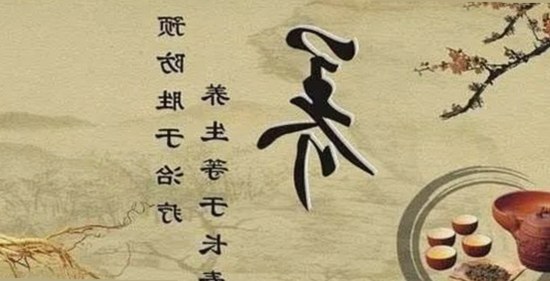 养
养生等于长寿
预防胜于治疗